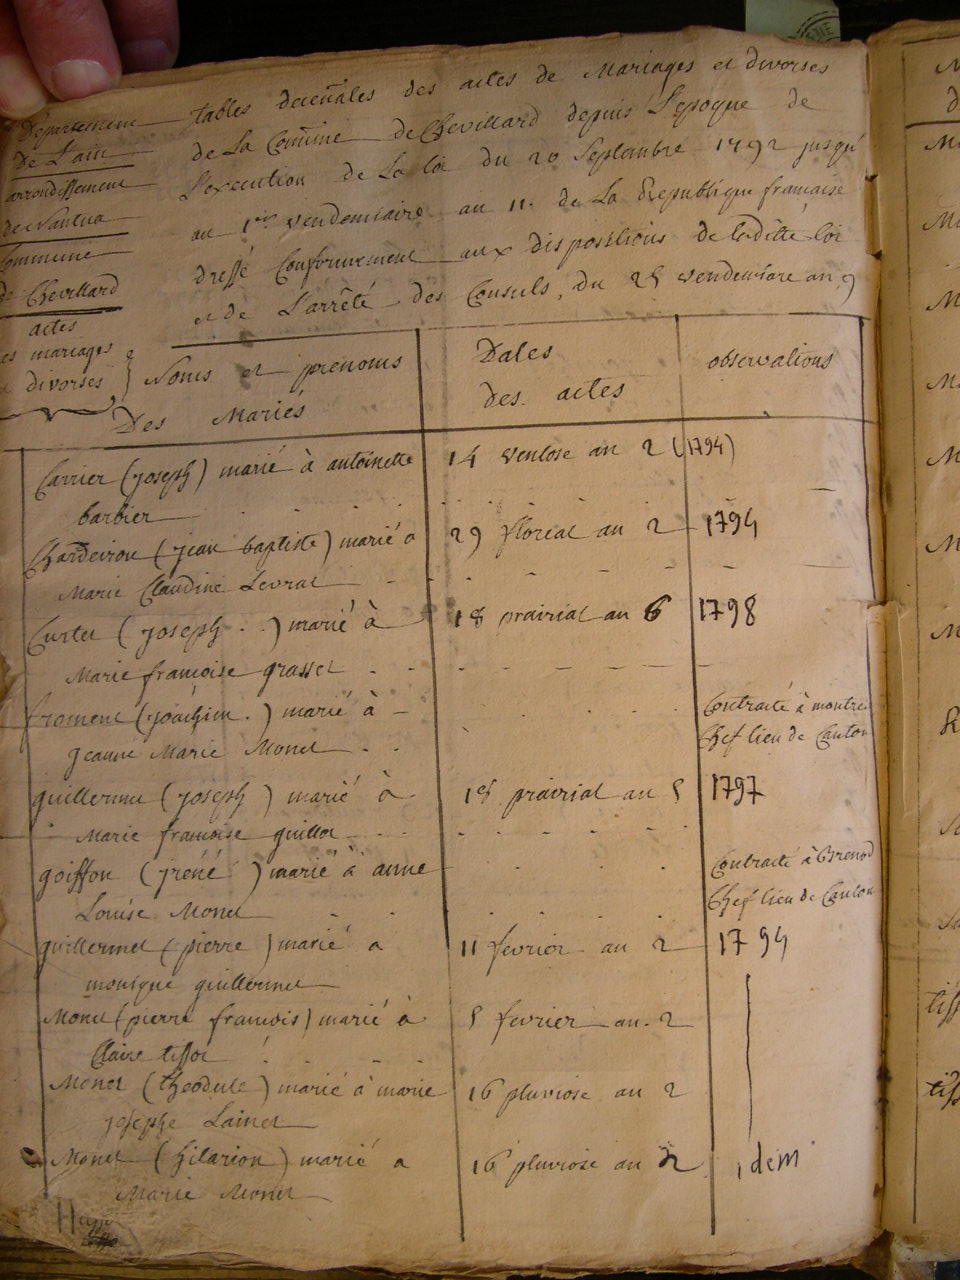 Département
De L'ain
arrondissement
de Nantua
Commune
de Chevillard
actes
es mariages
divorses
tables décénales des actes de Mariages et divorses
de La Comune de Chevillard depuis L'epoque de
L'execution de La loi du 20 Septembre 1792 jusqu'
au 1er vendemiaire an 11. de La Republique française
dressé Conformement aux dispositions de laditte loi
et de L'arrêté des Consuls, du 25 vendemiare an 9
Noms et prenoms
Des Mariés
Dates
des actes
observations
Carrier (joseph) marié à antoinette 14 ventose an 2 (1794)
barbier
Chardeiron (jean baptiste) marié a 29 floreal an 2 1794
Marie Claudine Levrat
Curtet (joseph) marié à 18 prairial an 6 1798
Marie françoise grasset
froment (joachim.) marié à Contracté à montre
jeanne Marie Monet Chef lieu de Canton
guillermet (joseph) marié à 18 prairial an 5 1797
Marie françoise guillot
goiffon (jréné) marié à anne Contracté à Brenod
Louise Monet Chef lieu de Canton
guillermet (pierre) marié a 11 fevrier an 2 1794
monique guillermet
Monet (pierre francois) marié à 5 fevrier an. 2
Claire tissot
Monet (theodule) marié à marie 16 pluviose an 2
josephe Lainet
Monet (hilarion) marié a 16 pluviose an 2 idem
Marie Monet